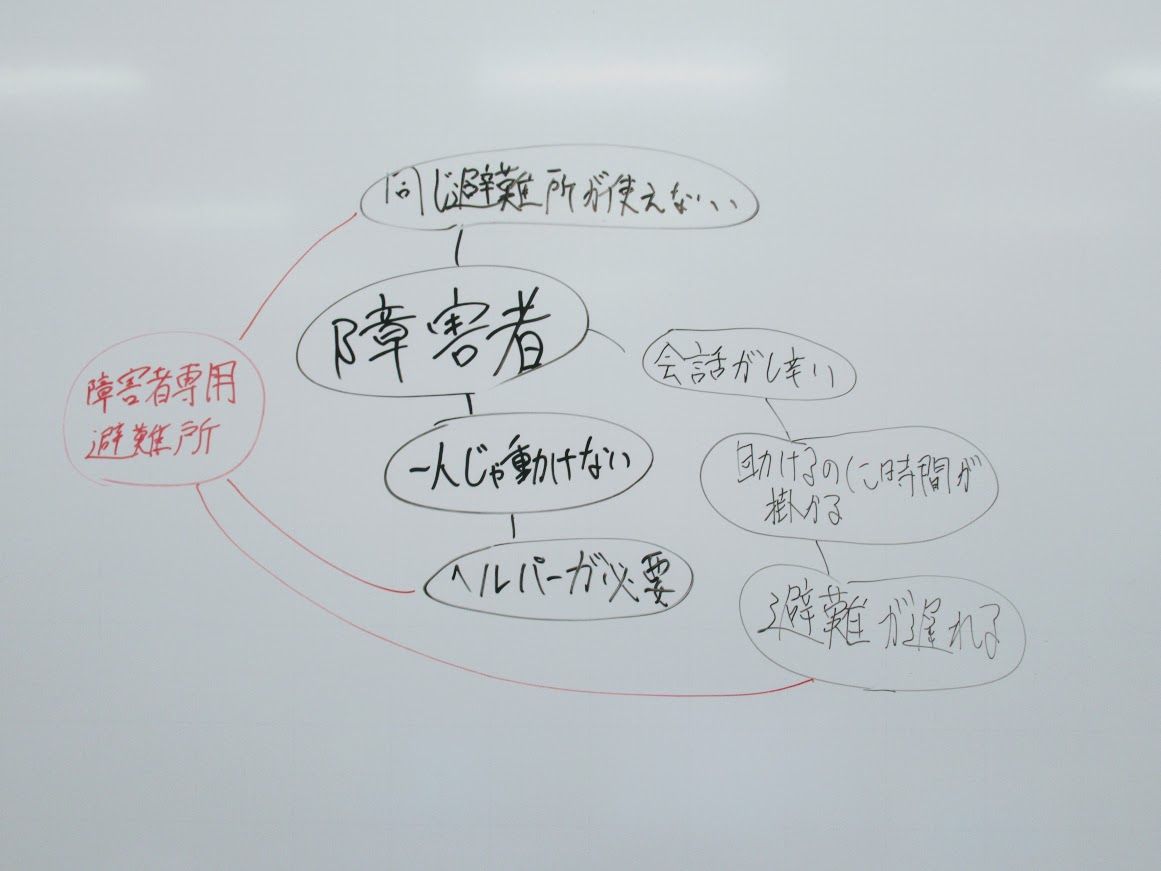 同じ避難所が使えない
障害者
障害者専用
避難所
一人じゃ動けない
ヘルパーが必要
会話がし辛い
助けるのに時間が
掛かる
避難が遅れる